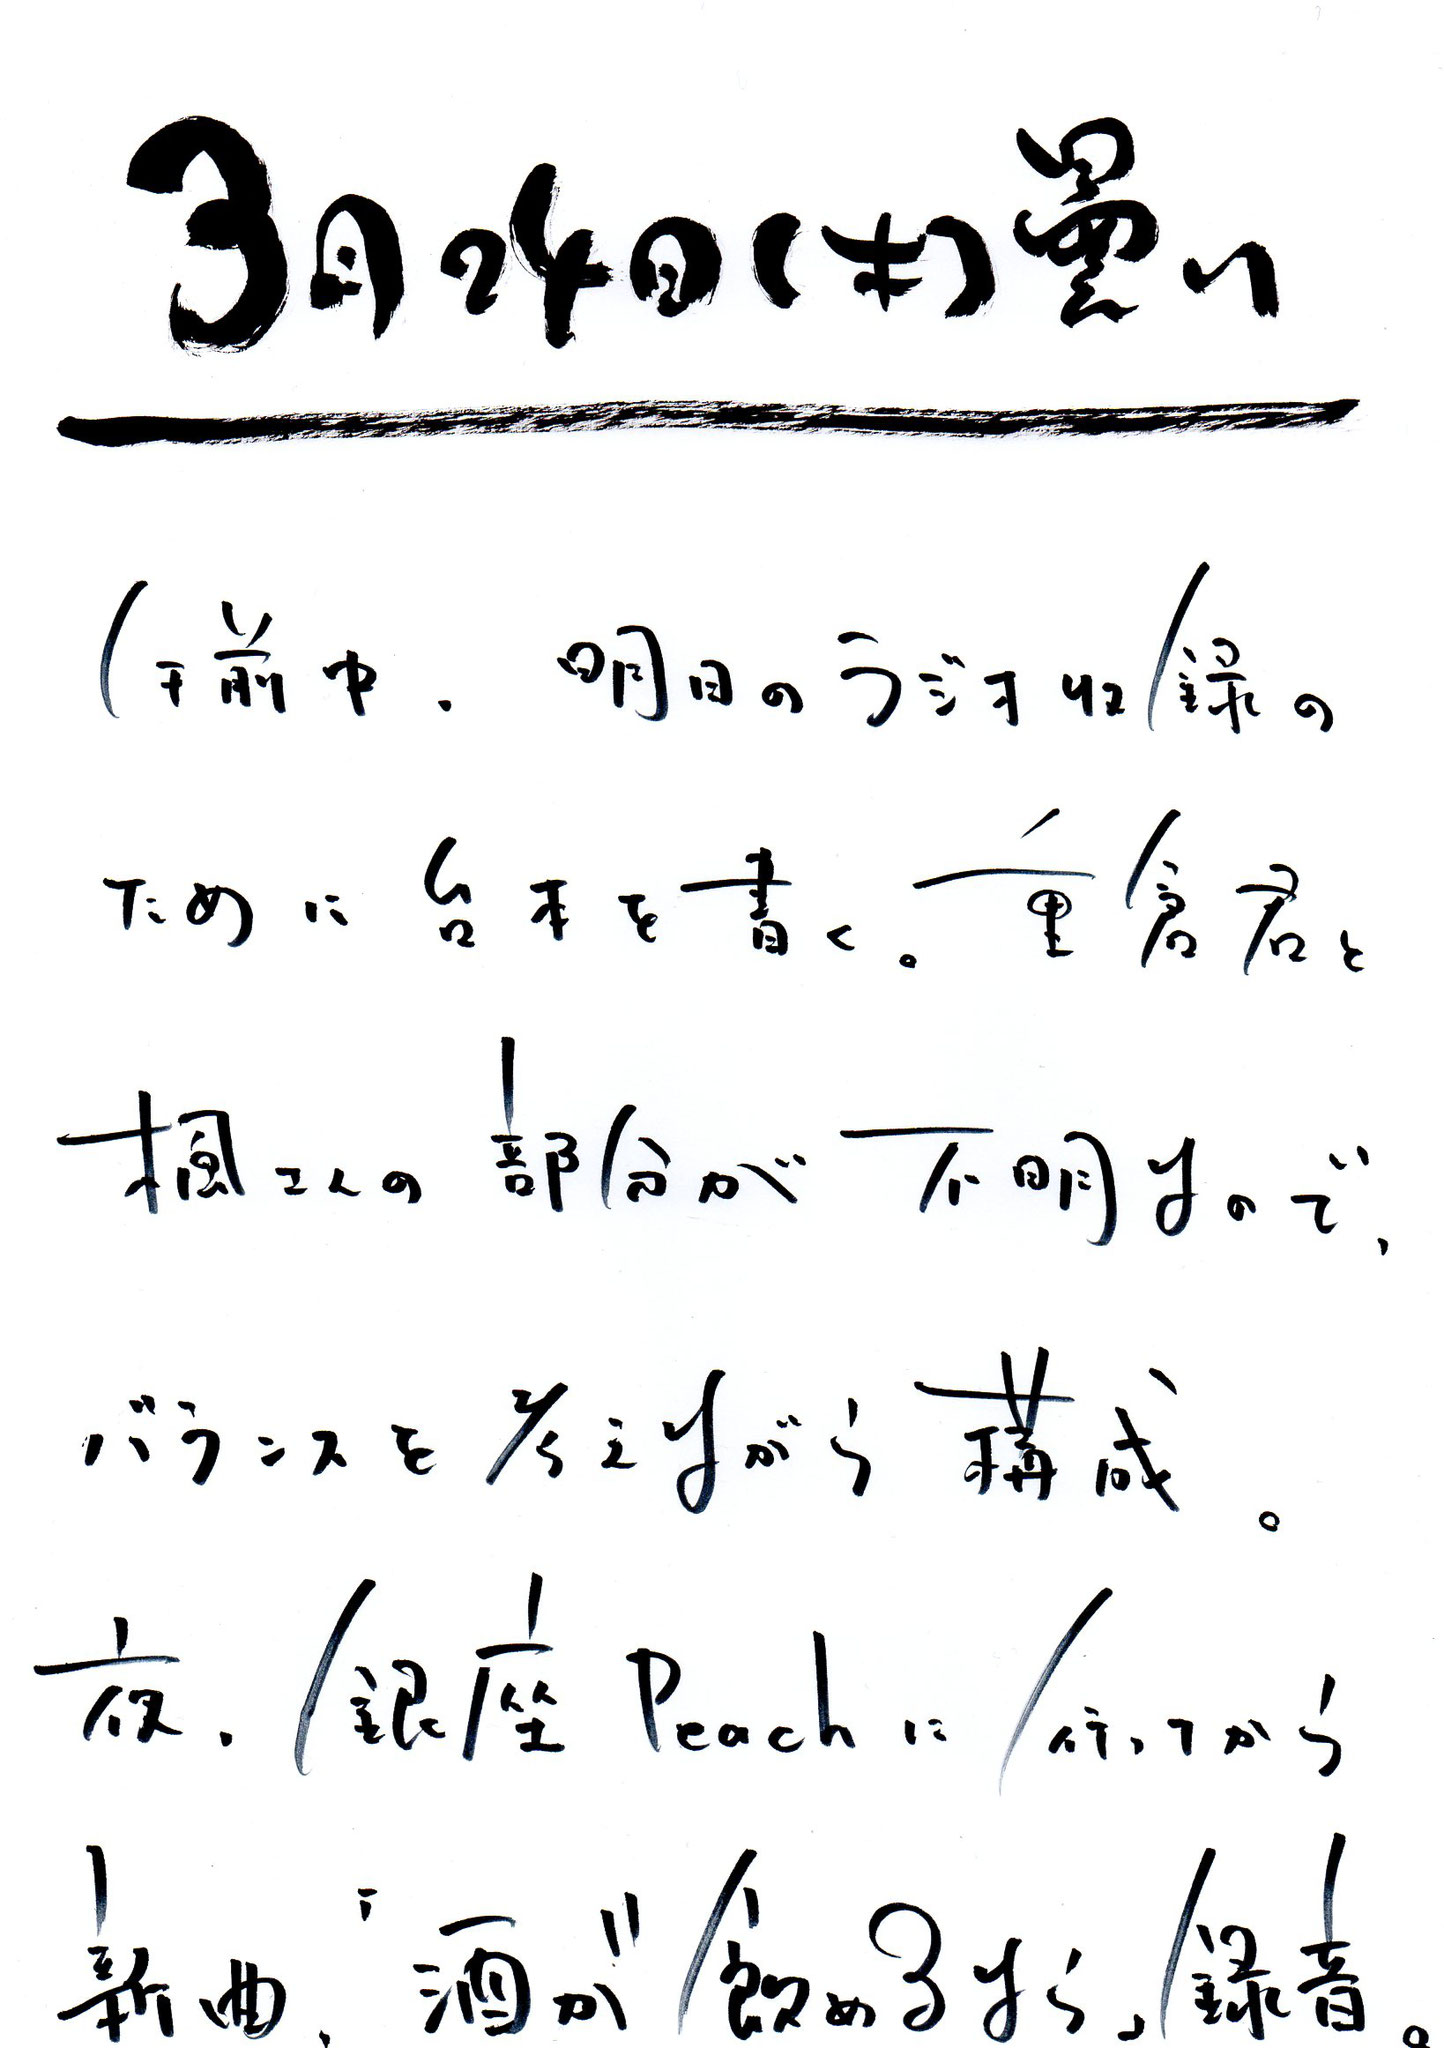 3月24日(木)曇り
午前中、明日のラジオ収録の
ために台本を書く。重倉君と
楓さんの部分が不明なので、
バランスを考えながら構成。
夜、銀座Peachに行ってから
新曲、「酒が飲めるなら」録音。